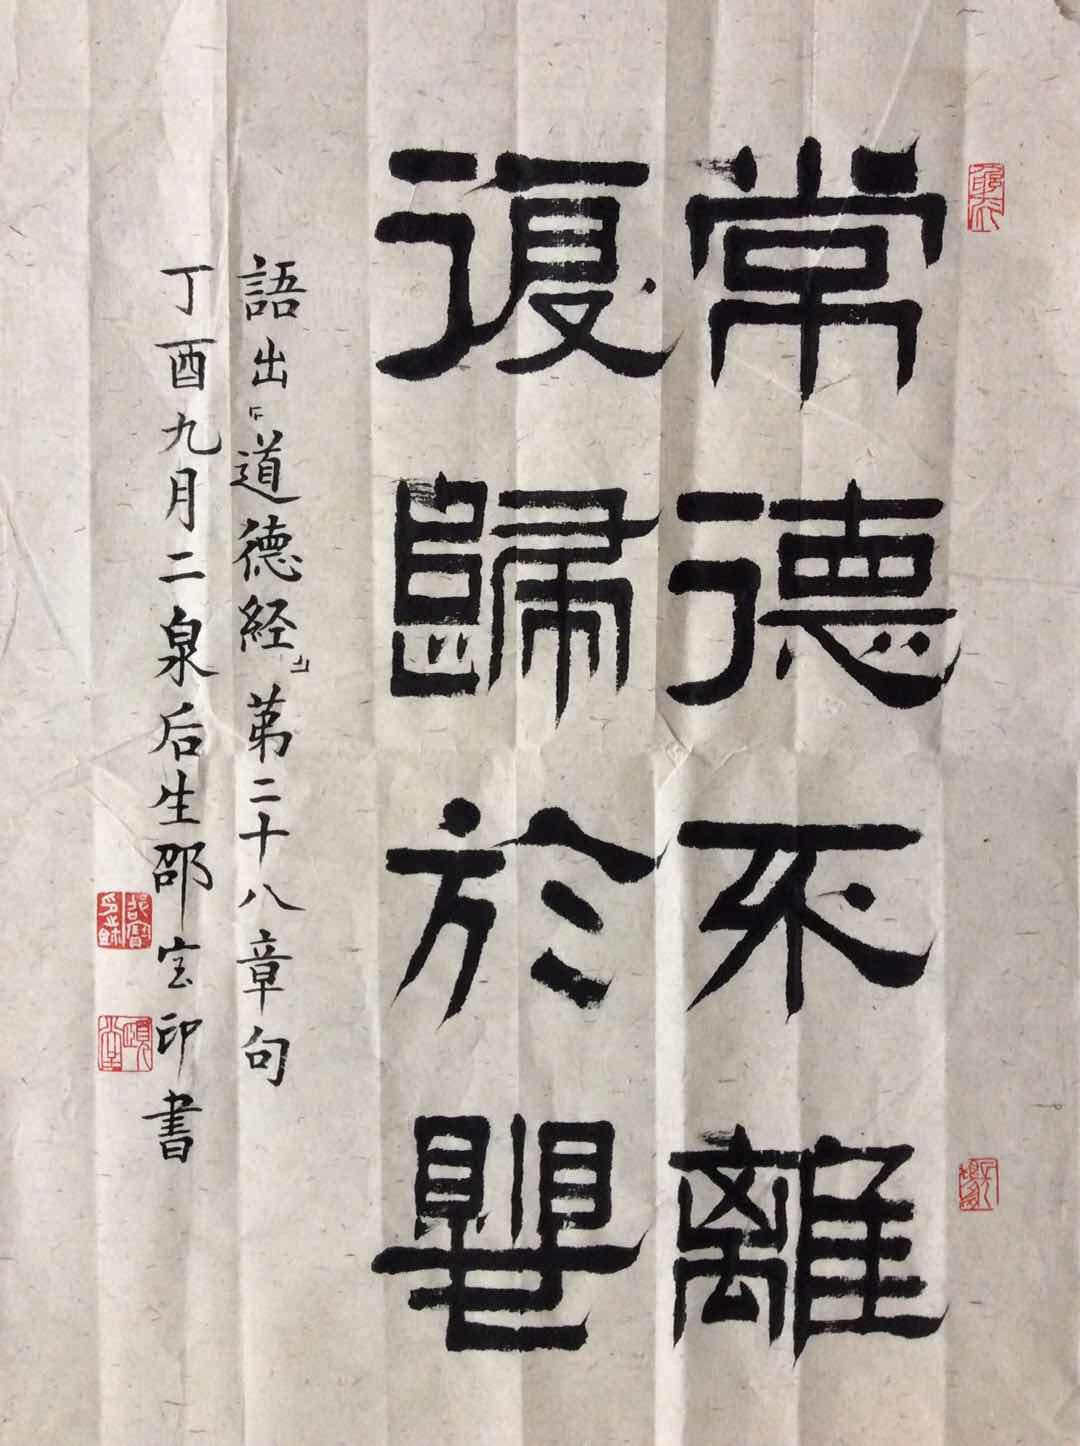 常德不離
復歸於嬰
語出「道德経」第二十八章句
丁酉九月二泉后生邵宝印書